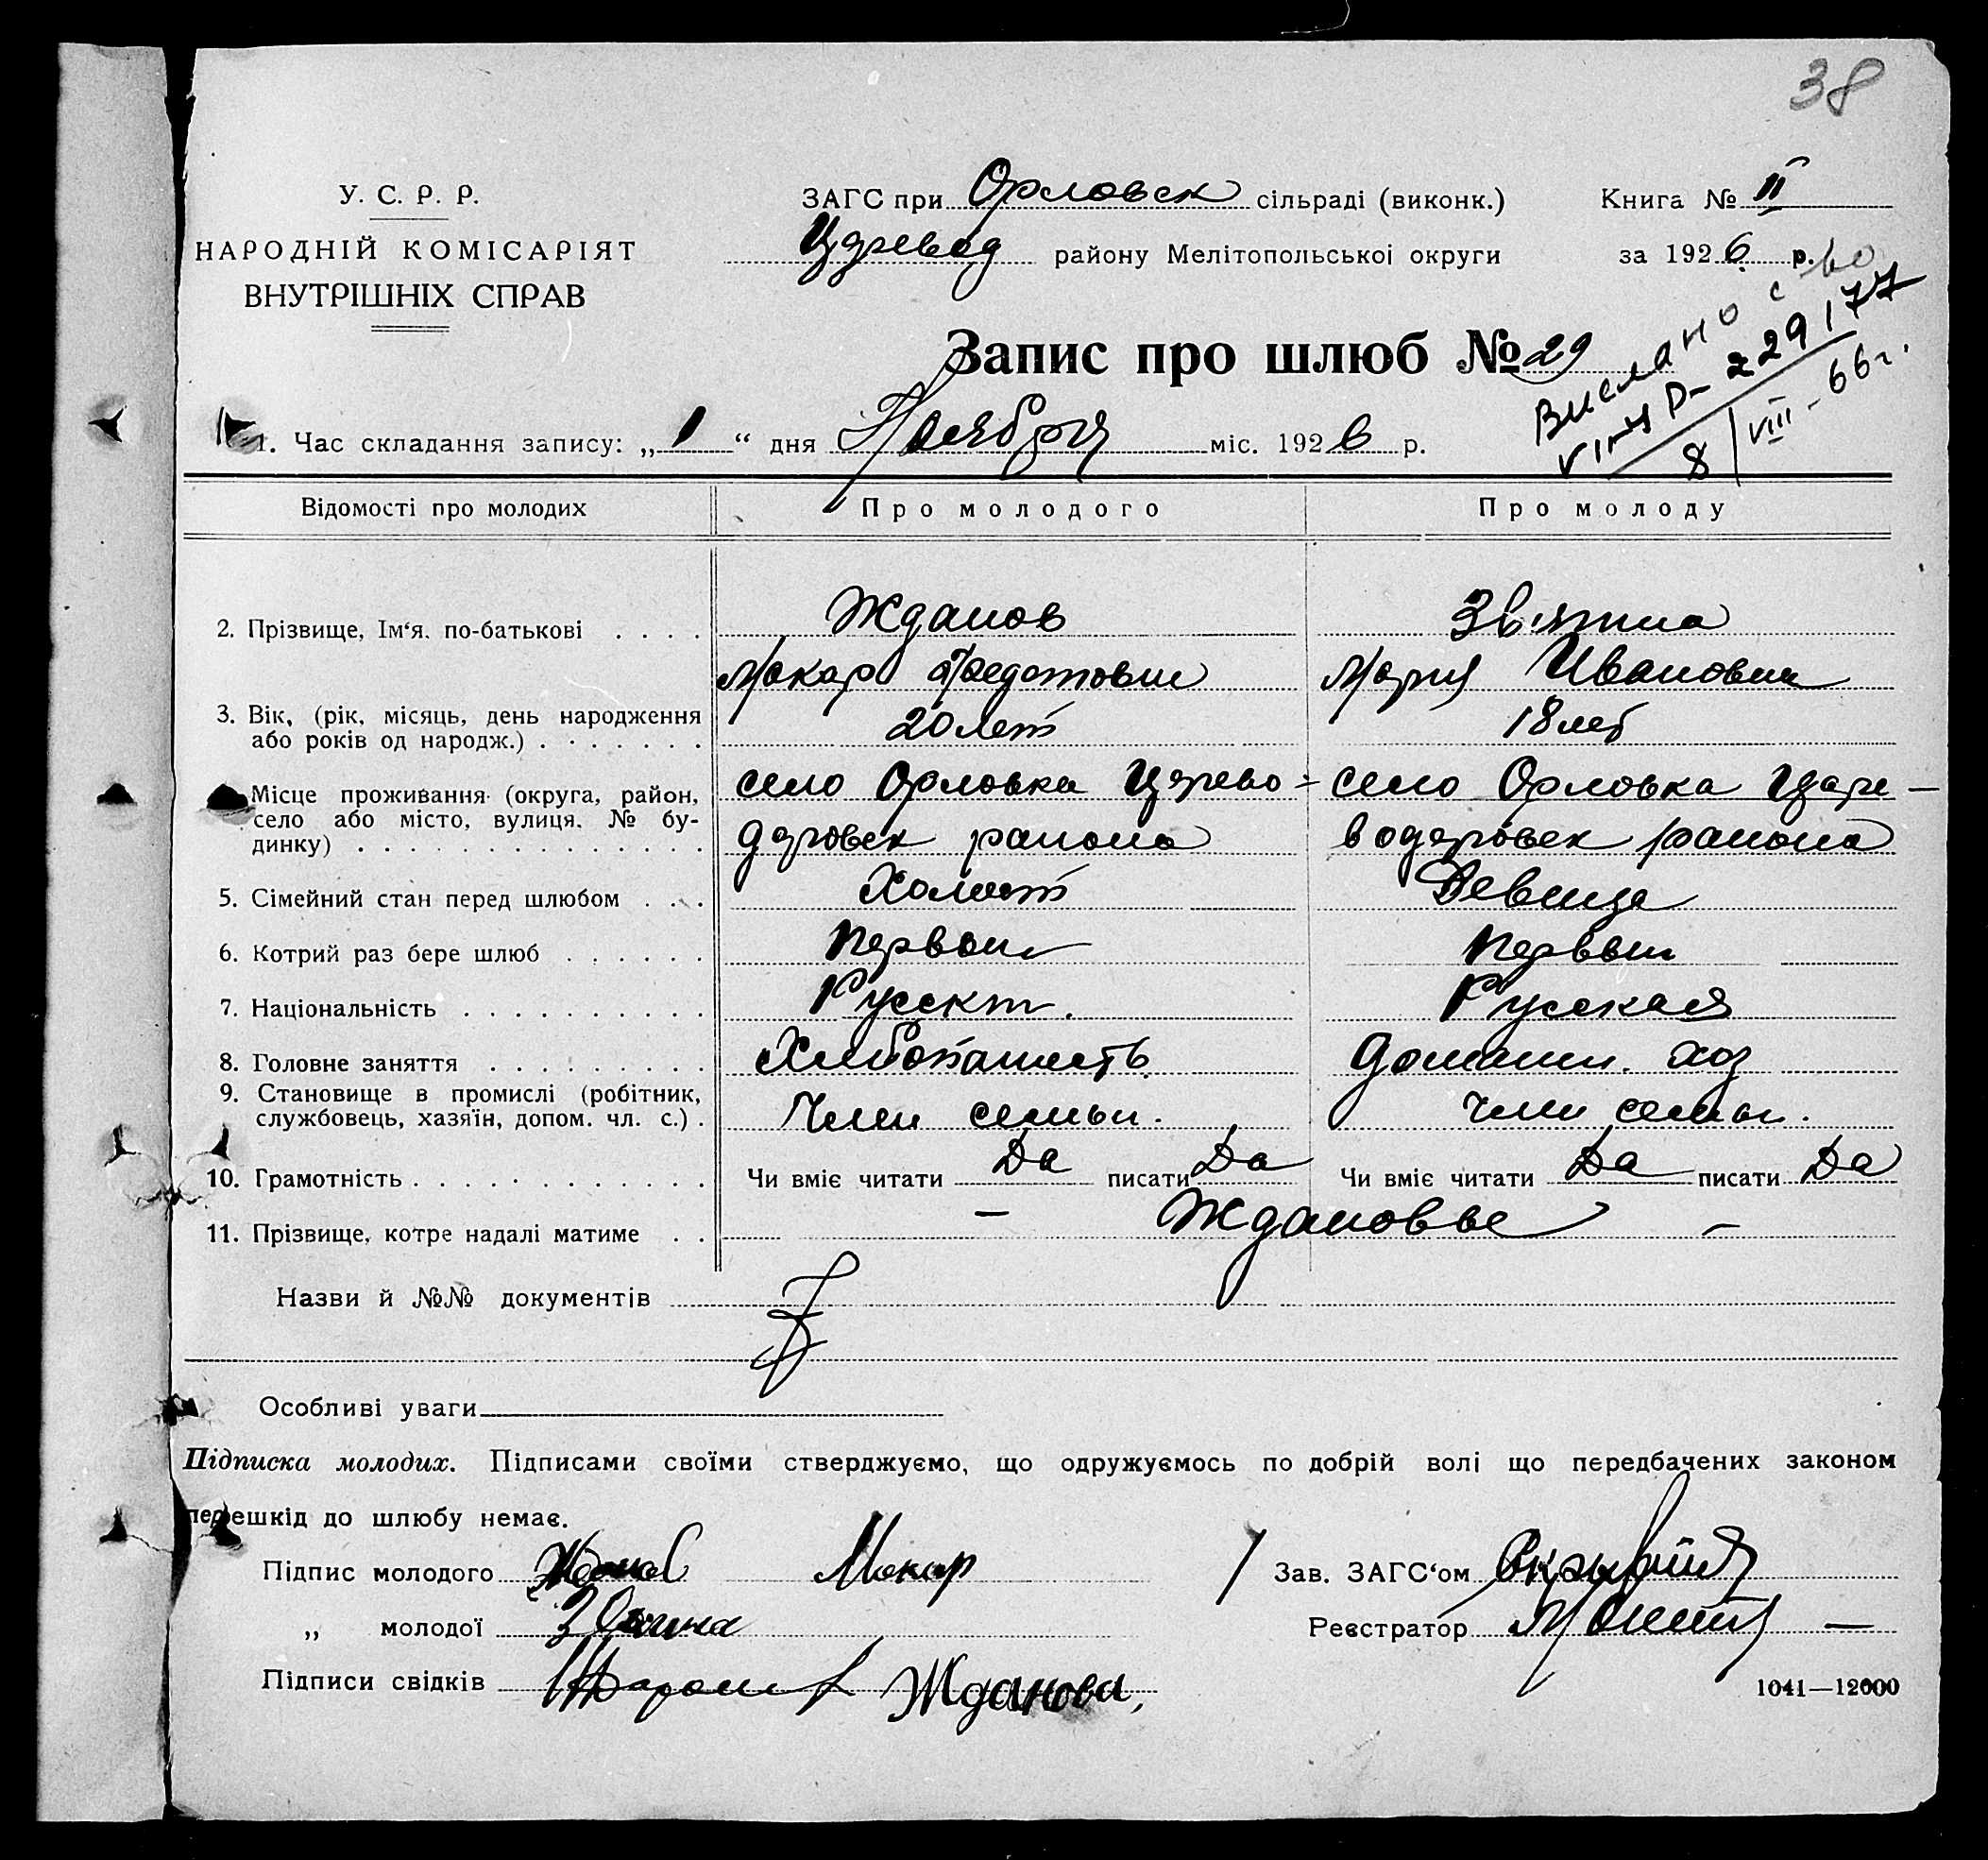 38
У. С. Р. Р.
НАРОДНІЙ КОМІСАРІЯТ
ВНУТРІШНІХ СПРАВ
ЗАГС при Орловск сільраді (виконк.)
Цárевод району Мелітопольської округи
Книга № II
за 1926 р.
Запис про шлюб № 29
Выслано с-во
VIПЯ Р- 229177
8/VIII-66г.
1. Час складання запису: „1“ дня Ноября міс. 1926 р.
Відомості про молодих Про молодого Про молоду
2. Прізвище, Ім'я, по-батькові . . . . Жданов Звягина
Макар Федотович Мария Ивановна
3. Вік, (рік, місяць, день народження
або років од народж.) . . . . . . . 20 лет 18 лет
Місце проживання (округа, район, село Орловка Царево- село Орловка Царе-
село або місто, вулиця, № бу-
динку) . . . . . . . . . . . . . . даровск района водаровск района
5. Сімейний стан перед шлюбом . . . Холост Девица
6. Котрий раз бере шлюб . . . . . . Первый Первый
7. Національність . . . . . . . . . . Русск. Русская
8. Головне заняття . . . . . . . . . Хлебопашеств Домашн. хоз
9. Становище в промислі (робітник,
службовець, хазяїн, допом. чл. с.) . Член семьи. Член семьи.
10. Грамотність . . . . . . . . . . . . Чи вміє читати Да писати Да Чи вміє читати Да писати Да
11. Прізвище, котре надалі матиме . . — Ждановы —
Назви й №№ документів
Особливі уваги
Підписка молодих. Підписами своїми стверджуємо, що одружуємось по добрій волі що передбачених законом
перешкід до шлюбу немає.
Підпис молодого Жданов Макар
Зав. ЗАГС'ом
„ молодої
Реєстратор
Підписи свідків Жданова,
1041—12000